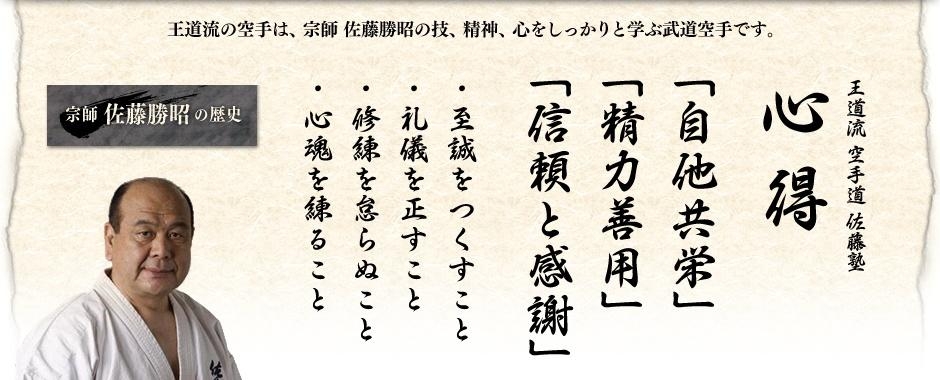 王道流の空手は、宗師 佐藤勝昭の技、精神、心をしっかりと学ぶ武道空手です。
王道流 空手道 佐藤塾
心得
「自他共栄」
「精力善用」
「信頼と感謝」
・至誠をつくすこと
・礼儀を正すこと
・修練を怠らぬこと
・心魂を練ること
宗師 佐藤勝昭の歴史
佐